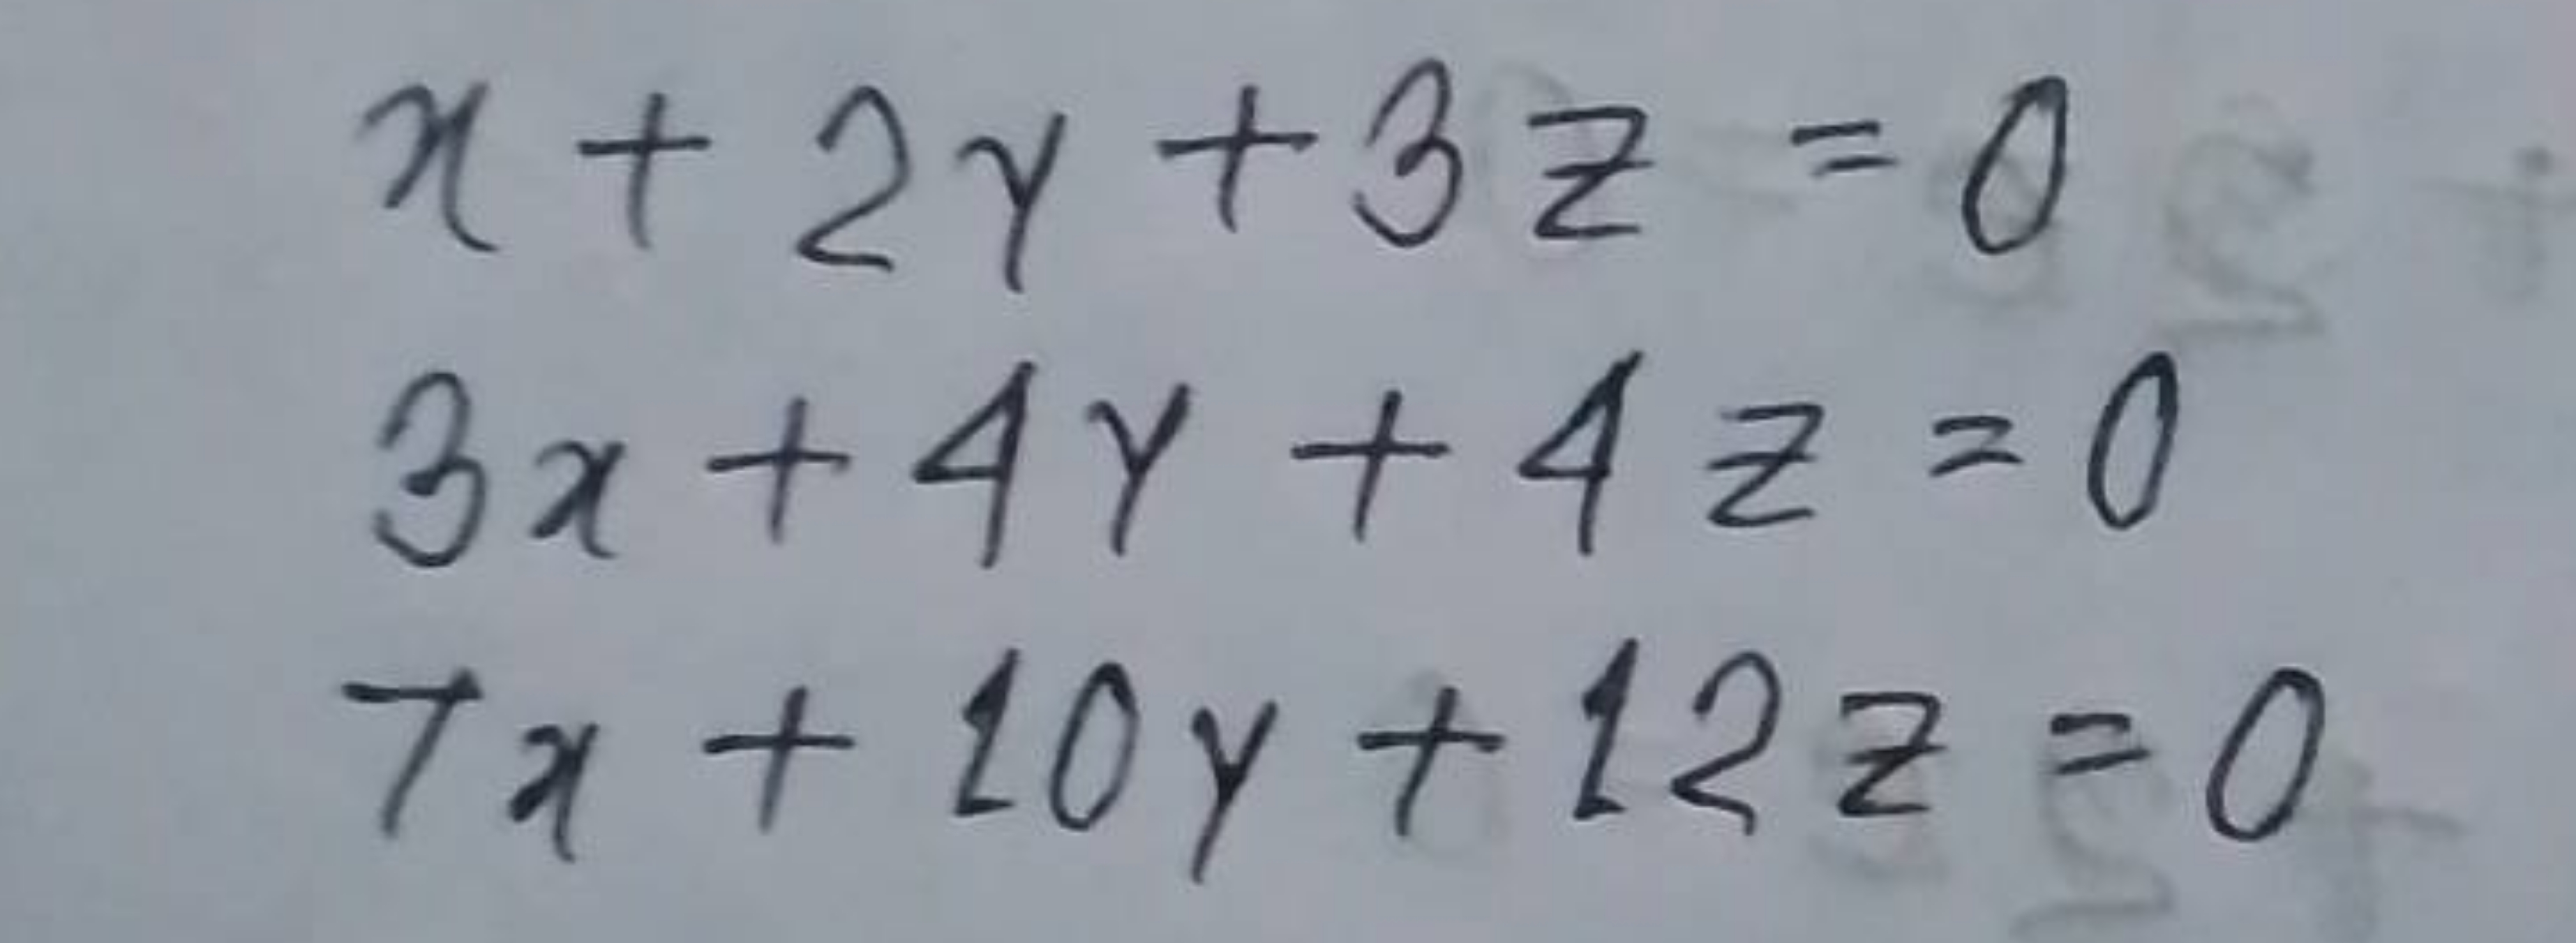 x + 2y + 3z = 0
3x + 4y + 4z = 0
7x + 10y + 12z = 0